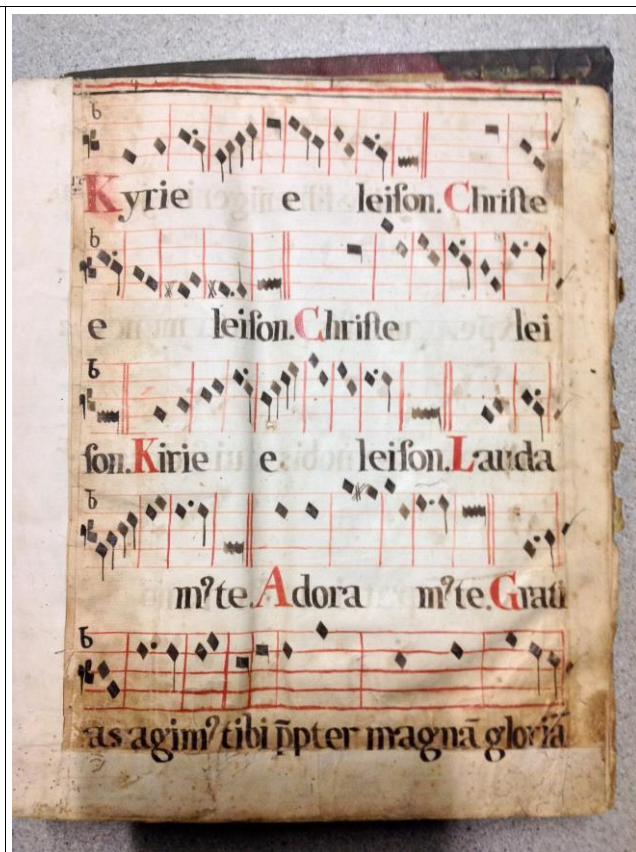 Kyrie e leiſon. Chriſte
e leiſon. Chriſte lei
ſon. Kirie e leiſon. Lauda
m⁹ te. Adora m⁹ te. Grati
as agim⁹ tibi p̄pter magnā gloriā